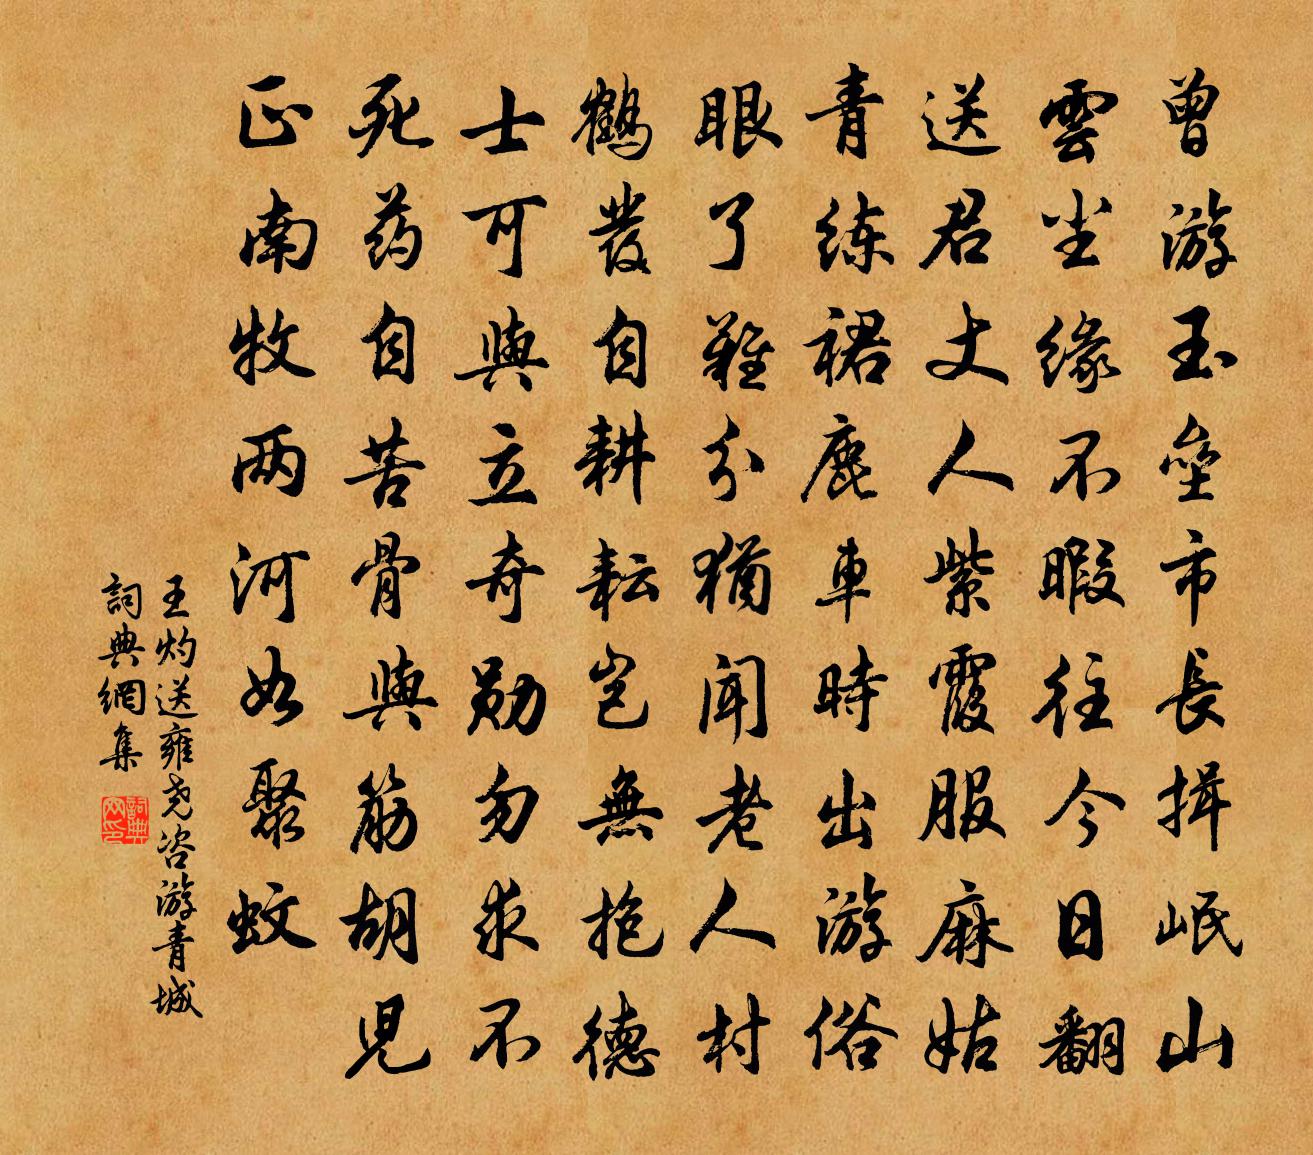 曾游玉壘市長揖岷山
雲尘缘不暇往今日翻
送君丈人紫霞服麻姑
青练裙鹿車時出游俗
眼了難分猶聞老人村
鶴发自耕耘岂無抱德
士可與立奇勋勿求不
死药自苦骨與筋胡児
正南牧两河如聚蚊
王灼送雍尧咨游青城
詞典網集
詞典网印